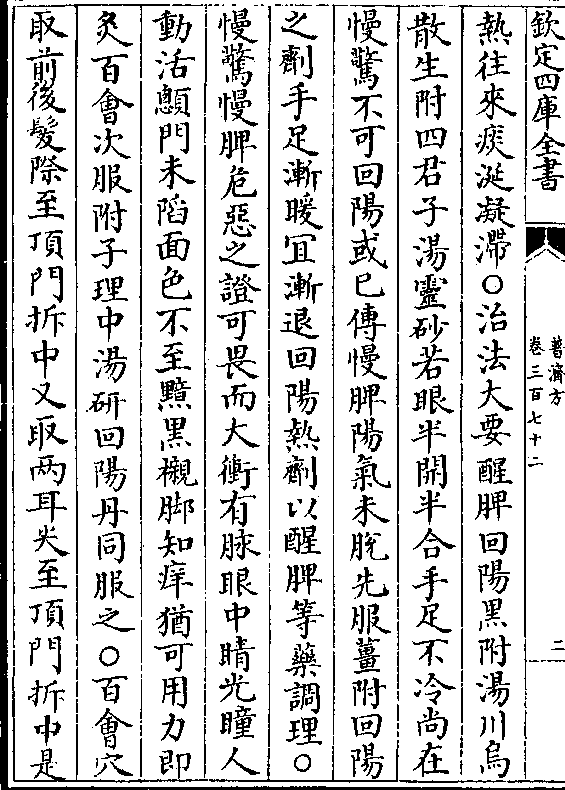 欽定四庫全書
普濟方
卷三百七十二
二
熱往來痰涎凝滯○治法大要醒脾回陽黑附湯川烏
散生附四君子湯靈砂若眼半開半合手足不冷尚在
慢驚不可回陽或已傳慢脾陽氣未脫先服薑附回陽
之劑手足漸暖冝漸退回陽熱劑以醒脾等藥調理○
慢驚慢脾危惡之證可畏而大衝有脉眼中睛光瞳人
動活顖門未䧟面色不至黯黒襯脚知痒猶可用力即
灸百會次服附子理中湯研回陽丹同服之○百會穴
取前後髮際至頂門折中又取兩耳尖至頂門折中是